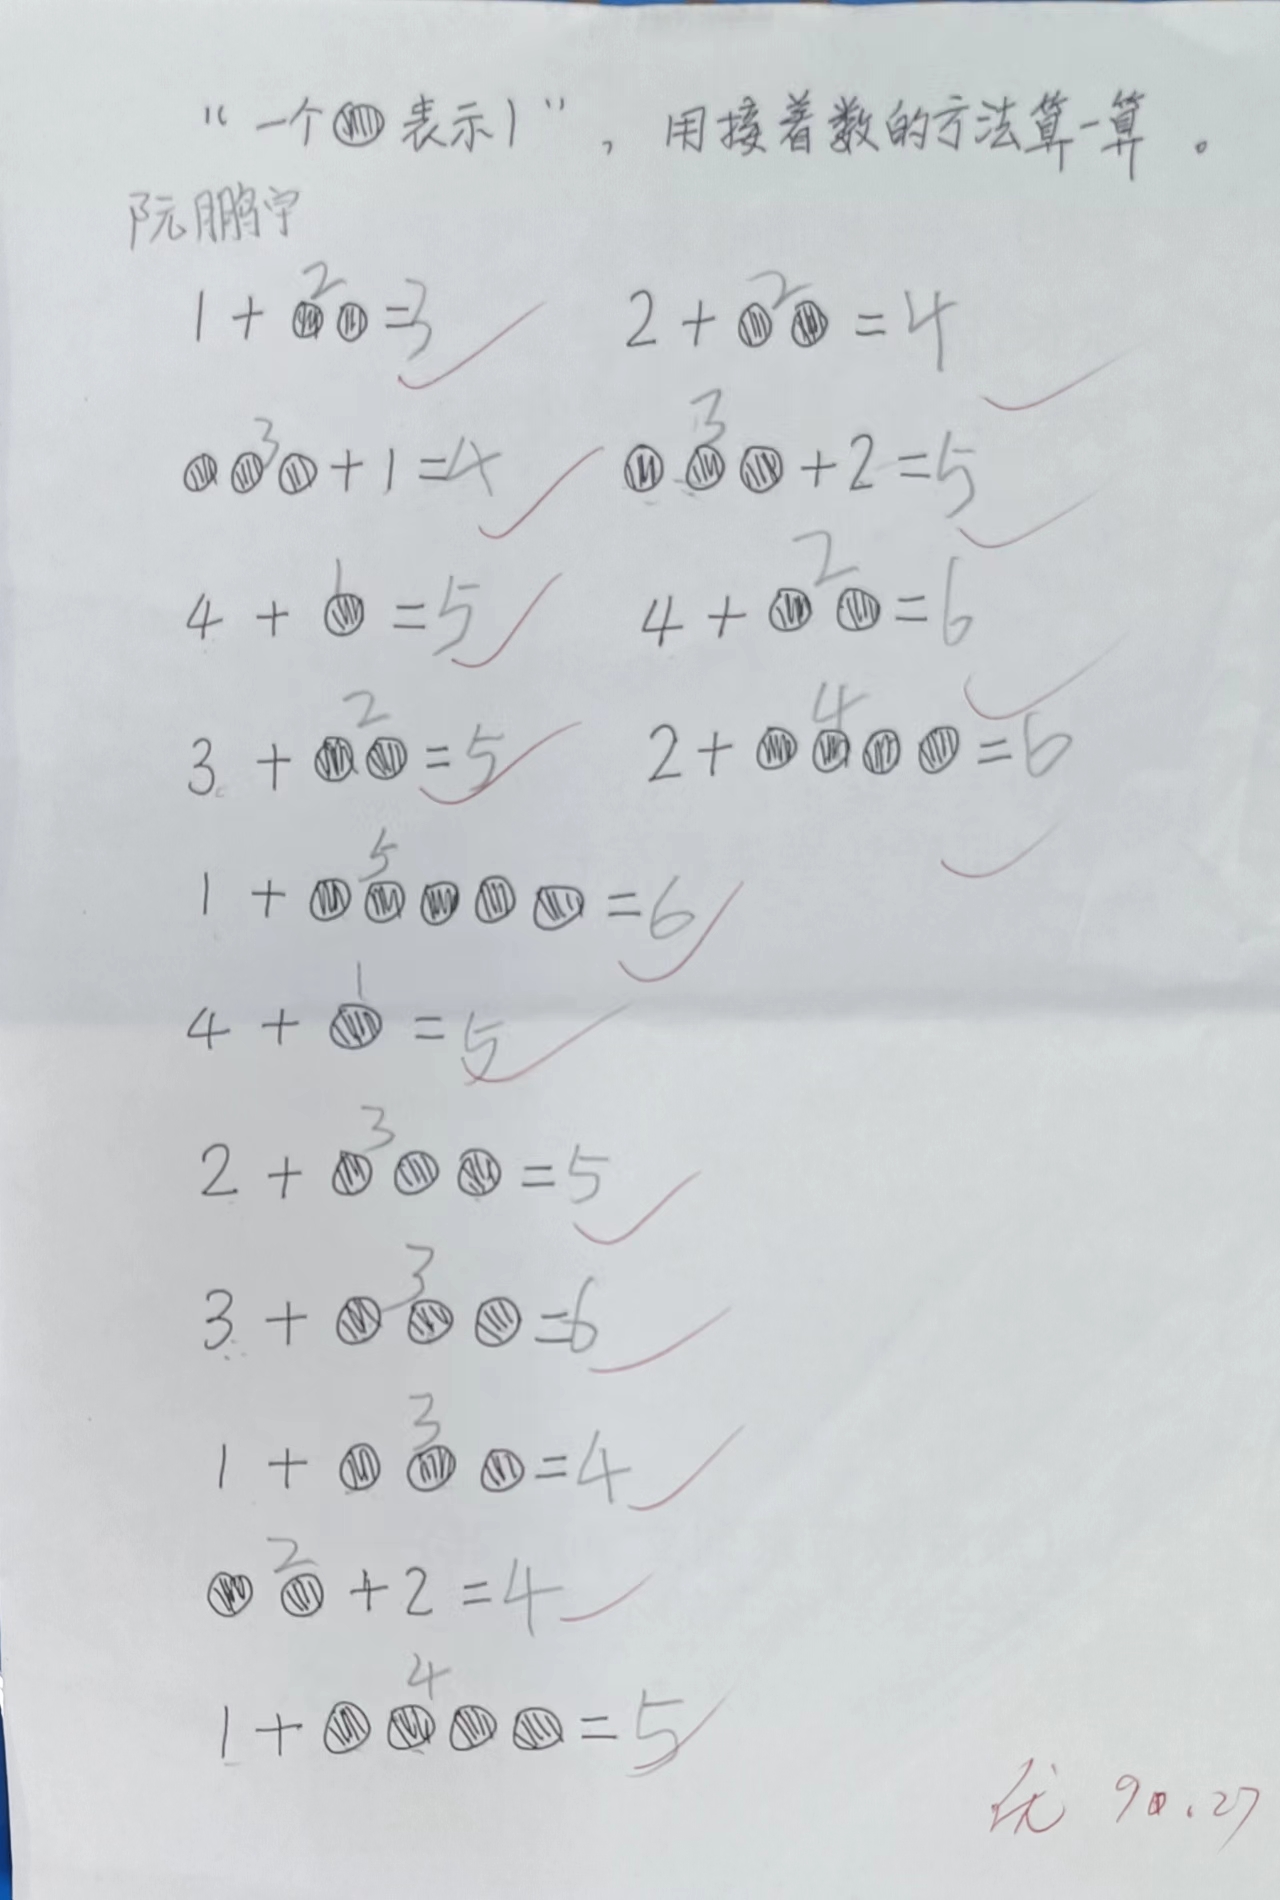 “一个●表示1”，用接着数的方法算一算。
阮鹏宇
2 2
1+●●=3 2+●●=4
3 3
●●●+1=4 ●●●+2=5
1 2
4+●=5 4+●●=6
2 4
3+●●=5 2+●●●●=6
5
1+●●●●●=6
1
4+●=5
3
2+●●●=5
3
3+●●●=6
3
1+●●●=4
2
●●+2=4
4
1+●●●●=5
优